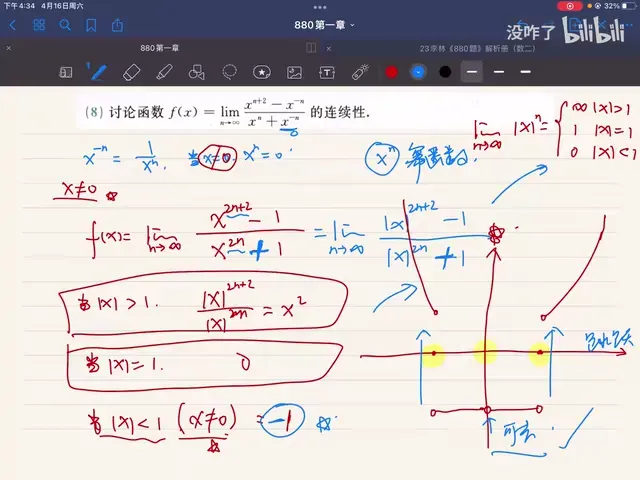 下午4:34 4月16日周六
880第一章
32%
没咋了 bilibili
880第一章
23李林《880题》解析册(数二)
(8) 讨论函数 f(x) = lim n→∞ (x^{n+2} − x^{−n})/(x^n + x^{−n}) 的连续性.
lim n→∞ |x|^n = { ∞ |x|>1
1 |x|=1
0 |x|<1
x^{−n} = 1/x^n 当 x=0 x^n=0
x^n 幂函数
x≠0
f(x) = lim n→∞ (x^{2n+2} − 1)/(x^{2n} + 1) = lim n→∞ (|x|^{2n+2} − 1)/(|x|^{2n} + 1)
当 |x|>1. |x|^{2n+2}/|x|^{2n} = x^2
当 |x|=1. 0
当 |x|<1 (x≠0) = −1
可去